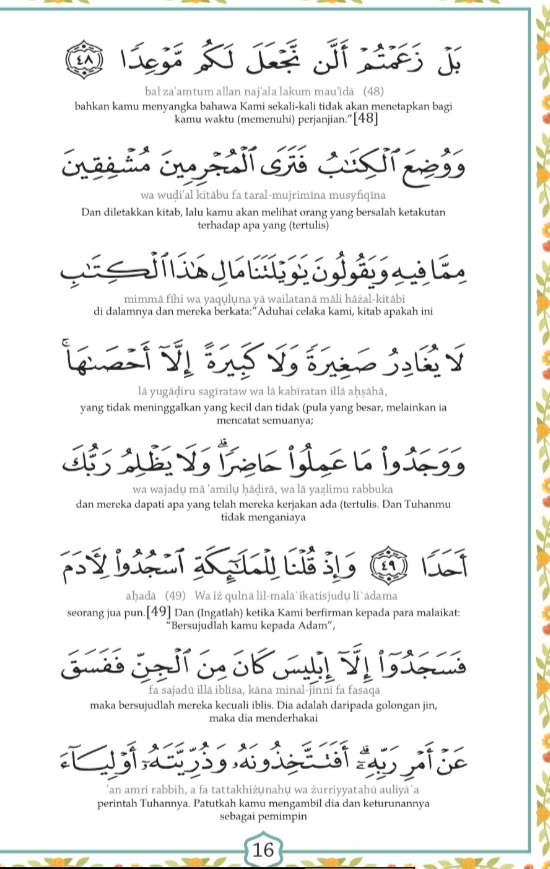 بَلْ زَعَمْتُمْ أَلَّن نَّجْعَلَ لَكُم مَّوْعِدًا ٤٨
bal za'amtum allan naj'ala lakum mau'idā (48)
bahkan kamu menyangka bahawa Kami sekali-kali tidak akan menetapkan bagi
kamu waktu (memenuhi) perjanjian."[48]
وَوُضِعَ ٱلْكِتَـٰبُ فَتَرَى ٱلْمُجْرِمِينَ مُشْفِقِينَ
wa wuḍi'al kitābu fa taral-mujrimīna musyfiqīna
Dan diletakkan kitab, lalu kamu akan melihat orang yang bersalah ketakutan
terhadap apa yang (tertulis)
مِمَّا فِيهِ وَيَقُولُونَ يَـٰوَيْلَتَنَا مَالِ هَـٰذَا ٱلْكِتَـٰبِ
mimmā fīhi wa yaqụlụna yā wailatanā māli hāżal-kitābi
di dalamnya dan mereka berkata:"Aduhai celaka kami, kitab apakah ini
لَا يُغَادِرُ صَغِيرَةً وَلَا كَبِيرَةً إِلَّآ أَحْصَىٰهَا ۚ
lā yugāḍiru sagīrataw wa lā kabīratan illā aḥṣāhā,
yang tidak meninggalkan yang kecil dan tidak (pula yang besar, melainkan ia
mencatat semuanya;
وَوَجَدُوا۟ مَا عَمِلُوا۟ حَاضِرًا ۗ وَلَا يَظْلِمُ رَبُّكَ
wa wajadụ mā 'amilụ ḥāḍirā, wa lā yaẓlimu rabbuka
dan mereka dapati apa yang telah mereka kerjakan ada (tertulis. Dan Tuhanmu
tidak menganiaya
أَحَدًا ٤٩ وَإِذْ قُلْنَا لِلْمَلَـٰٓئِكَةِ ٱسْجُدُوا۟ لِـَٔادَمَ
aḥadā (49) Wa iż qulnā lil-malā`ikatisjudụ li`ādama
seorang jua pun.[49] Dan (Ingatlah) ketika Kami berfirman kepada para malaikat:
"Bersujudlah kamu kepada Adam",
فَسَجَدُوٓا۟ إِلَّآ إِبْلِيسَ كَانَ مِنَ ٱلْجِنِّ فَفَسَقَ
fa sajadū illā iblīsa, kāna minal-jinni fa fasaqa
maka bersujudlah mereka kecuali iblis. Dia adalah daripada golongan jin,
maka dia menderhakai
عَنْ أَمْرِ رَبِّهِۦٓ ۗ أَفَتَتَّخِذُونَهُۥ وَذُرِّيَّتَهُۥٓ أَوْلِيَآءَ
'an amri rabbih, a fa tattakhiżụnahụ wa żurriyyatahū auliyā`a
perintah Tuhannya. Patutkah kamu mengambil dia dan keturunannya
sebagai pemimpin
16